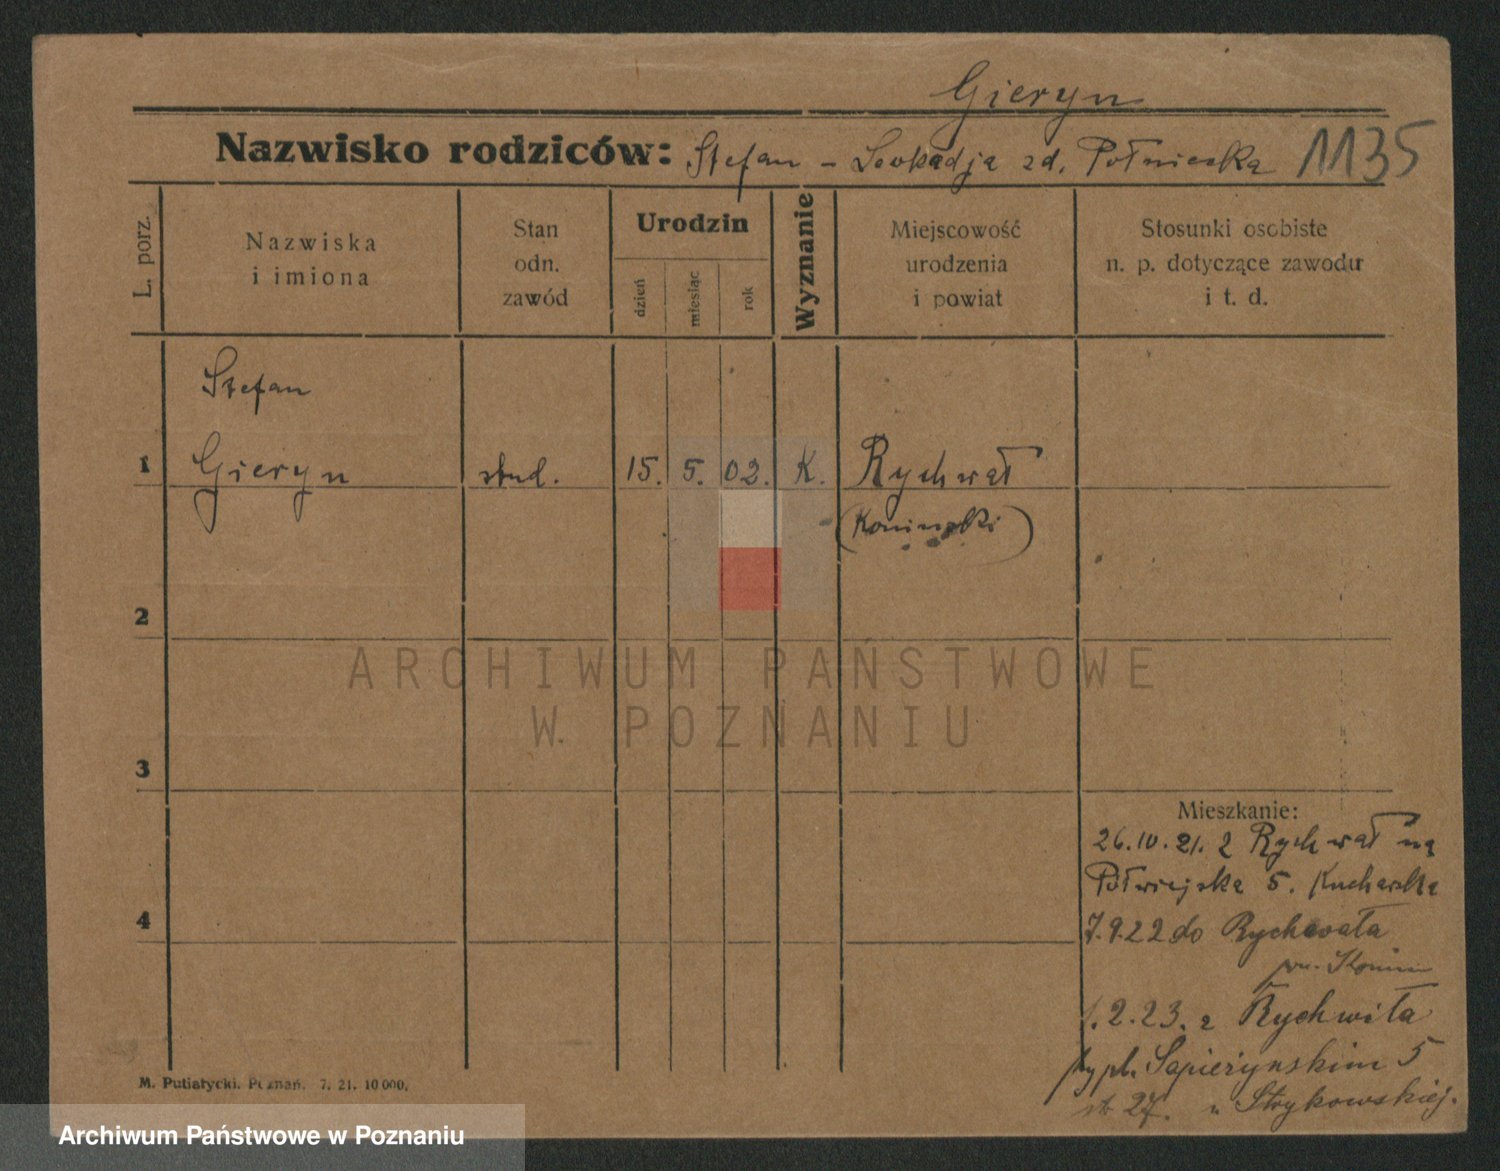 Gieryn
Nazwisko rodziców: Stefan – Leokadja zd. 1135
L. porz.
Nazwiska
i imiona
Stan
odn.
zawód
Urodzin
dzień
miesiąc
rok
Wyznanie
Miejscowość
urodzenia
i powiat
Stosunki osobiste
n. p. dotyczące zawodu
i t. d.
Stefan
1 Gieryn stud. 15. 5. 02. K. Rychwał
(Koniński)
2
ARCHIWUM PAŃSTWOWE
W POZNANIU
3
Mieszkanie:
26.10.21. z Rychwał na
Półwiejska 5. Kucharska
4
7.9.22 do Rychwała
pow. Konin
1.2.23. z Rychwała
przy pl. Sapieżyńskim 5
27. u Strykowskiej.
M. Putiatycki. Poznań. 7. 21. 10 000.
Archiwum Państwowe w Poznaniu